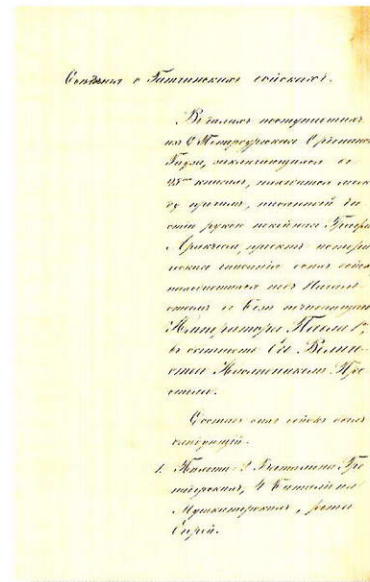 Свѣденія о Гатчинскихъ войскахъ.
Въ дѣлахъ поступившихъ
изъ С. Петербургскаго Ордонансъ
Гауза, заключающихся въ
книгахъ, находится меж-
ду прочимъ, писанный
рукою покойнаго Графа
Аракчеева, проектъ
описанія всѣхъ войскъ
находившихся подъ Началь-
ствомъ въ Бозѣ почивающаго
Императора Павла 1го,
въ бытность Его Величе-
ства Наслѣдникомъ Пре-
стола.
Составъ сихъ войскъ былъ
слѣдующій.
1. Пѣхота: 2 Баталіона Гре-
надерскихъ, 4 Баталіона
Мушкатерскихъ, рота
Егерей.